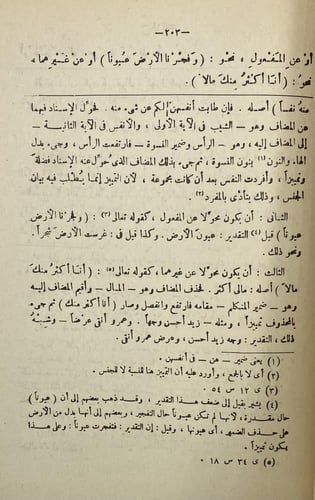 — ٢٠٣ —
أو عن المفعول ، نحو : ( وَفَجَّرْنَا الأَرْضَ عُيُوناً ) أو عن غيرهما ،
نحو : ( أَنَا أَكْثَرُ مِنْكَ مَالاً ) .
منه نفساً ) أصله . فإن طابت أنفسهن لكم عن شىء منه . فحول الإسناد فيهما
عن المضاف وهو — الشيب فى الآية الأولى ، والأنفس فى الآية الثانيـــة —
إلى المضاف إليه ، وهو — الرأس وضمير النسوة — فارتفعت الرأس ، وجىء بدل
الهاء والنون (١) بنون النسوة ، ثم جىء بذلك المضاف الذى حوّل عنه الإسناد فضلة
وتمييزاً ، وأفردت النفس بعد أن كانت مجموعة ، لأن التمييز إنمـا يُطلب فيه بيان
الجنس ، وذلك يتأدى بالمفرد (٢) .
الثانى : أن يكون محوّلا عن المفعول ، كقوله تعالى (٣) : ( وفجرنا الأرض
عيوناً ) قيل (٤) التقدير : عيون الأرض . وكذا قيل فى : غرست الأرض شجراً .
ونحو ذلك .
الثالث : أن يكون محوّلا عن غيرهما ، كقوله تعالى (٥) : ( أنا أكثر منك
مالا ) أصله : مالى أكثر . فحذف المضاف وهو — المال — وأقيم المضاف إليه
وهو — ضمير المتكلم — مقامه فارتفع وانفصل وصار ( أنا أكثر منك ) ثم جىء
بالمحذوف تمييزاً ، ومثله — زيد أحسن وجهاً . وعمرو أنقى عرضاً — وشبـــه
ذلك ، التقدير : وجه زيد أحسن ، وعرض عمرو أنقى .
(١) يعنى ضمير — هن — فى أنفسهن .
(٢) أى لا بالجمع ، وأورد عليه أن التمييز هنا للنسبة لا للجنس .
(٣) ى ١٢ س ٥٤
(٤) يشير بقيل إلى ضعف هذا التقدير ، وقد ذهب بعضهم إلى أن ( عيوناً )
حال مقدرة ، لأنها لم تكن عيوناً حال التفجير ، وبعضهم إلى أنها بدل من الأرض
على حذف الضمير ، أى عيونها ، وقيل : إن التقدير : فتفجرت عيوناً : وعلى هذا
يكون تمييزاً .
(٥) ى ٣٤ س ١٨